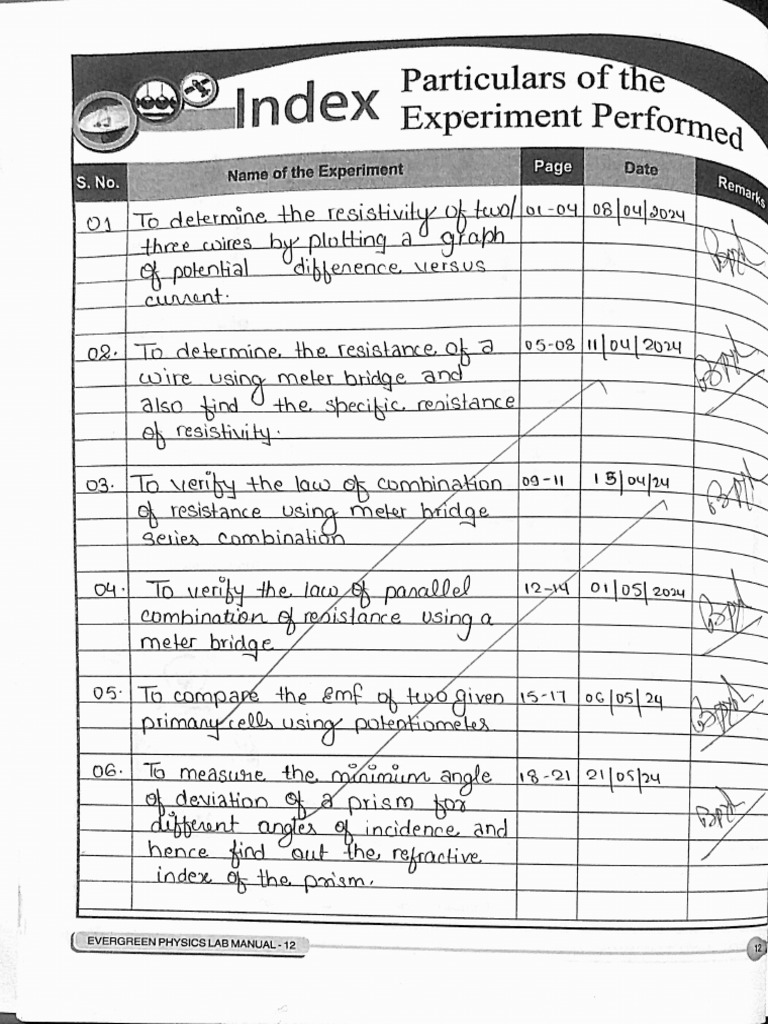 Index
Particulars of the
Experiment Performed
S. No. Name of the Experiment Page Date Remarks
01 To determine the resistivity of two/ 01-04 08/04/2024
three wires by plotting a graph
of potential diffenence versus
current.
02. To determine the resistance of a 05-08 11/04/2024
wire using meter bridge and
also find the specific renistance
of resistivity.
03. To verify the law of combination 09-11 15/04/24
of resistance using meter bridge
series combination
04. To verify the law of parallel 12-14 01/05/2024
combination of renistance using a
meter bridge
05. To compare the Emf of two given 15-17 06/05/24
primary cells using potentiometer
06. To measure the minimum angle 18-21 21/05/24
of deviation of a prism for
different angles of incidence and
hence find out the refractive
index of the prism.
EVERGREEN PHYSICS LAB MANUAL - 12
12